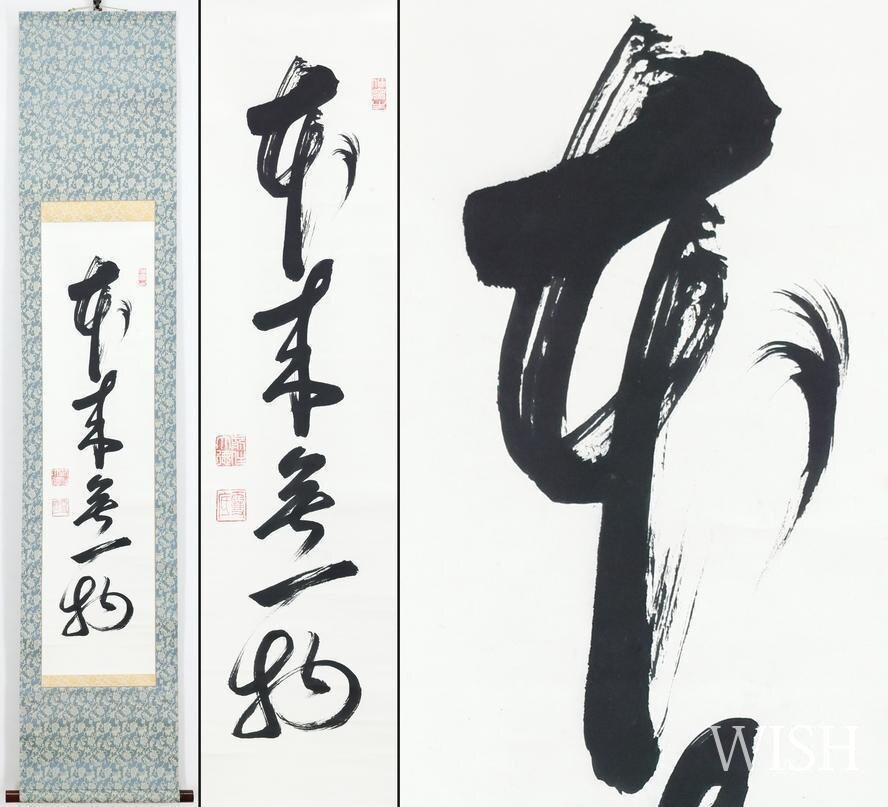 本来無一物
本来無一物
本
WISH